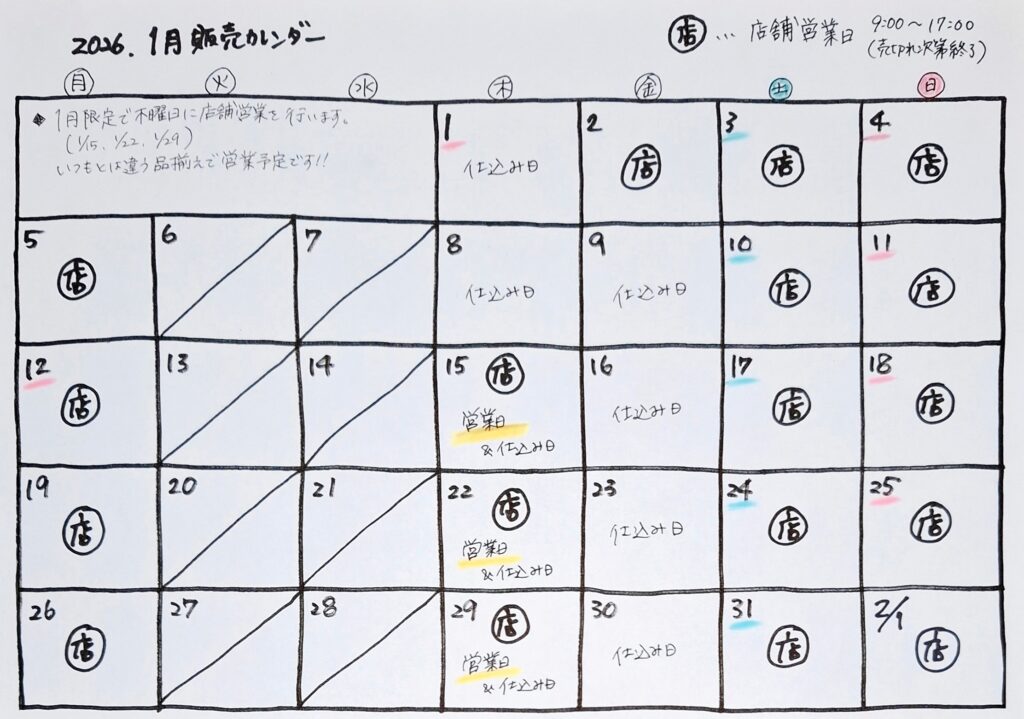 2026. 1月 販売カレンダー
店 … 店舗営業日 9:00～17:00
(売切れ次第終了)
月 火 水 木 金 土 日
◆ 1月限定で木曜日に店舗営業を行います。
(1/15、1/22、1/29)
いつもとは違う品揃えで営業予定です!!
1 2 3 4
仕込み日 店 店 店
5 6 7 8 9 10 11
店 仕込み日 仕込み日 店 店
12 13 14 15 16 17 18
店 店 仕込み日 店 店
営業日
&仕込み日
19 20 21 22 23 24 25
店 店 仕込み日 店 店
営業日
&仕込み日
26 27 28 29 30 31 2/1
店 店 仕込み日 店 店
営業日
&仕込み日